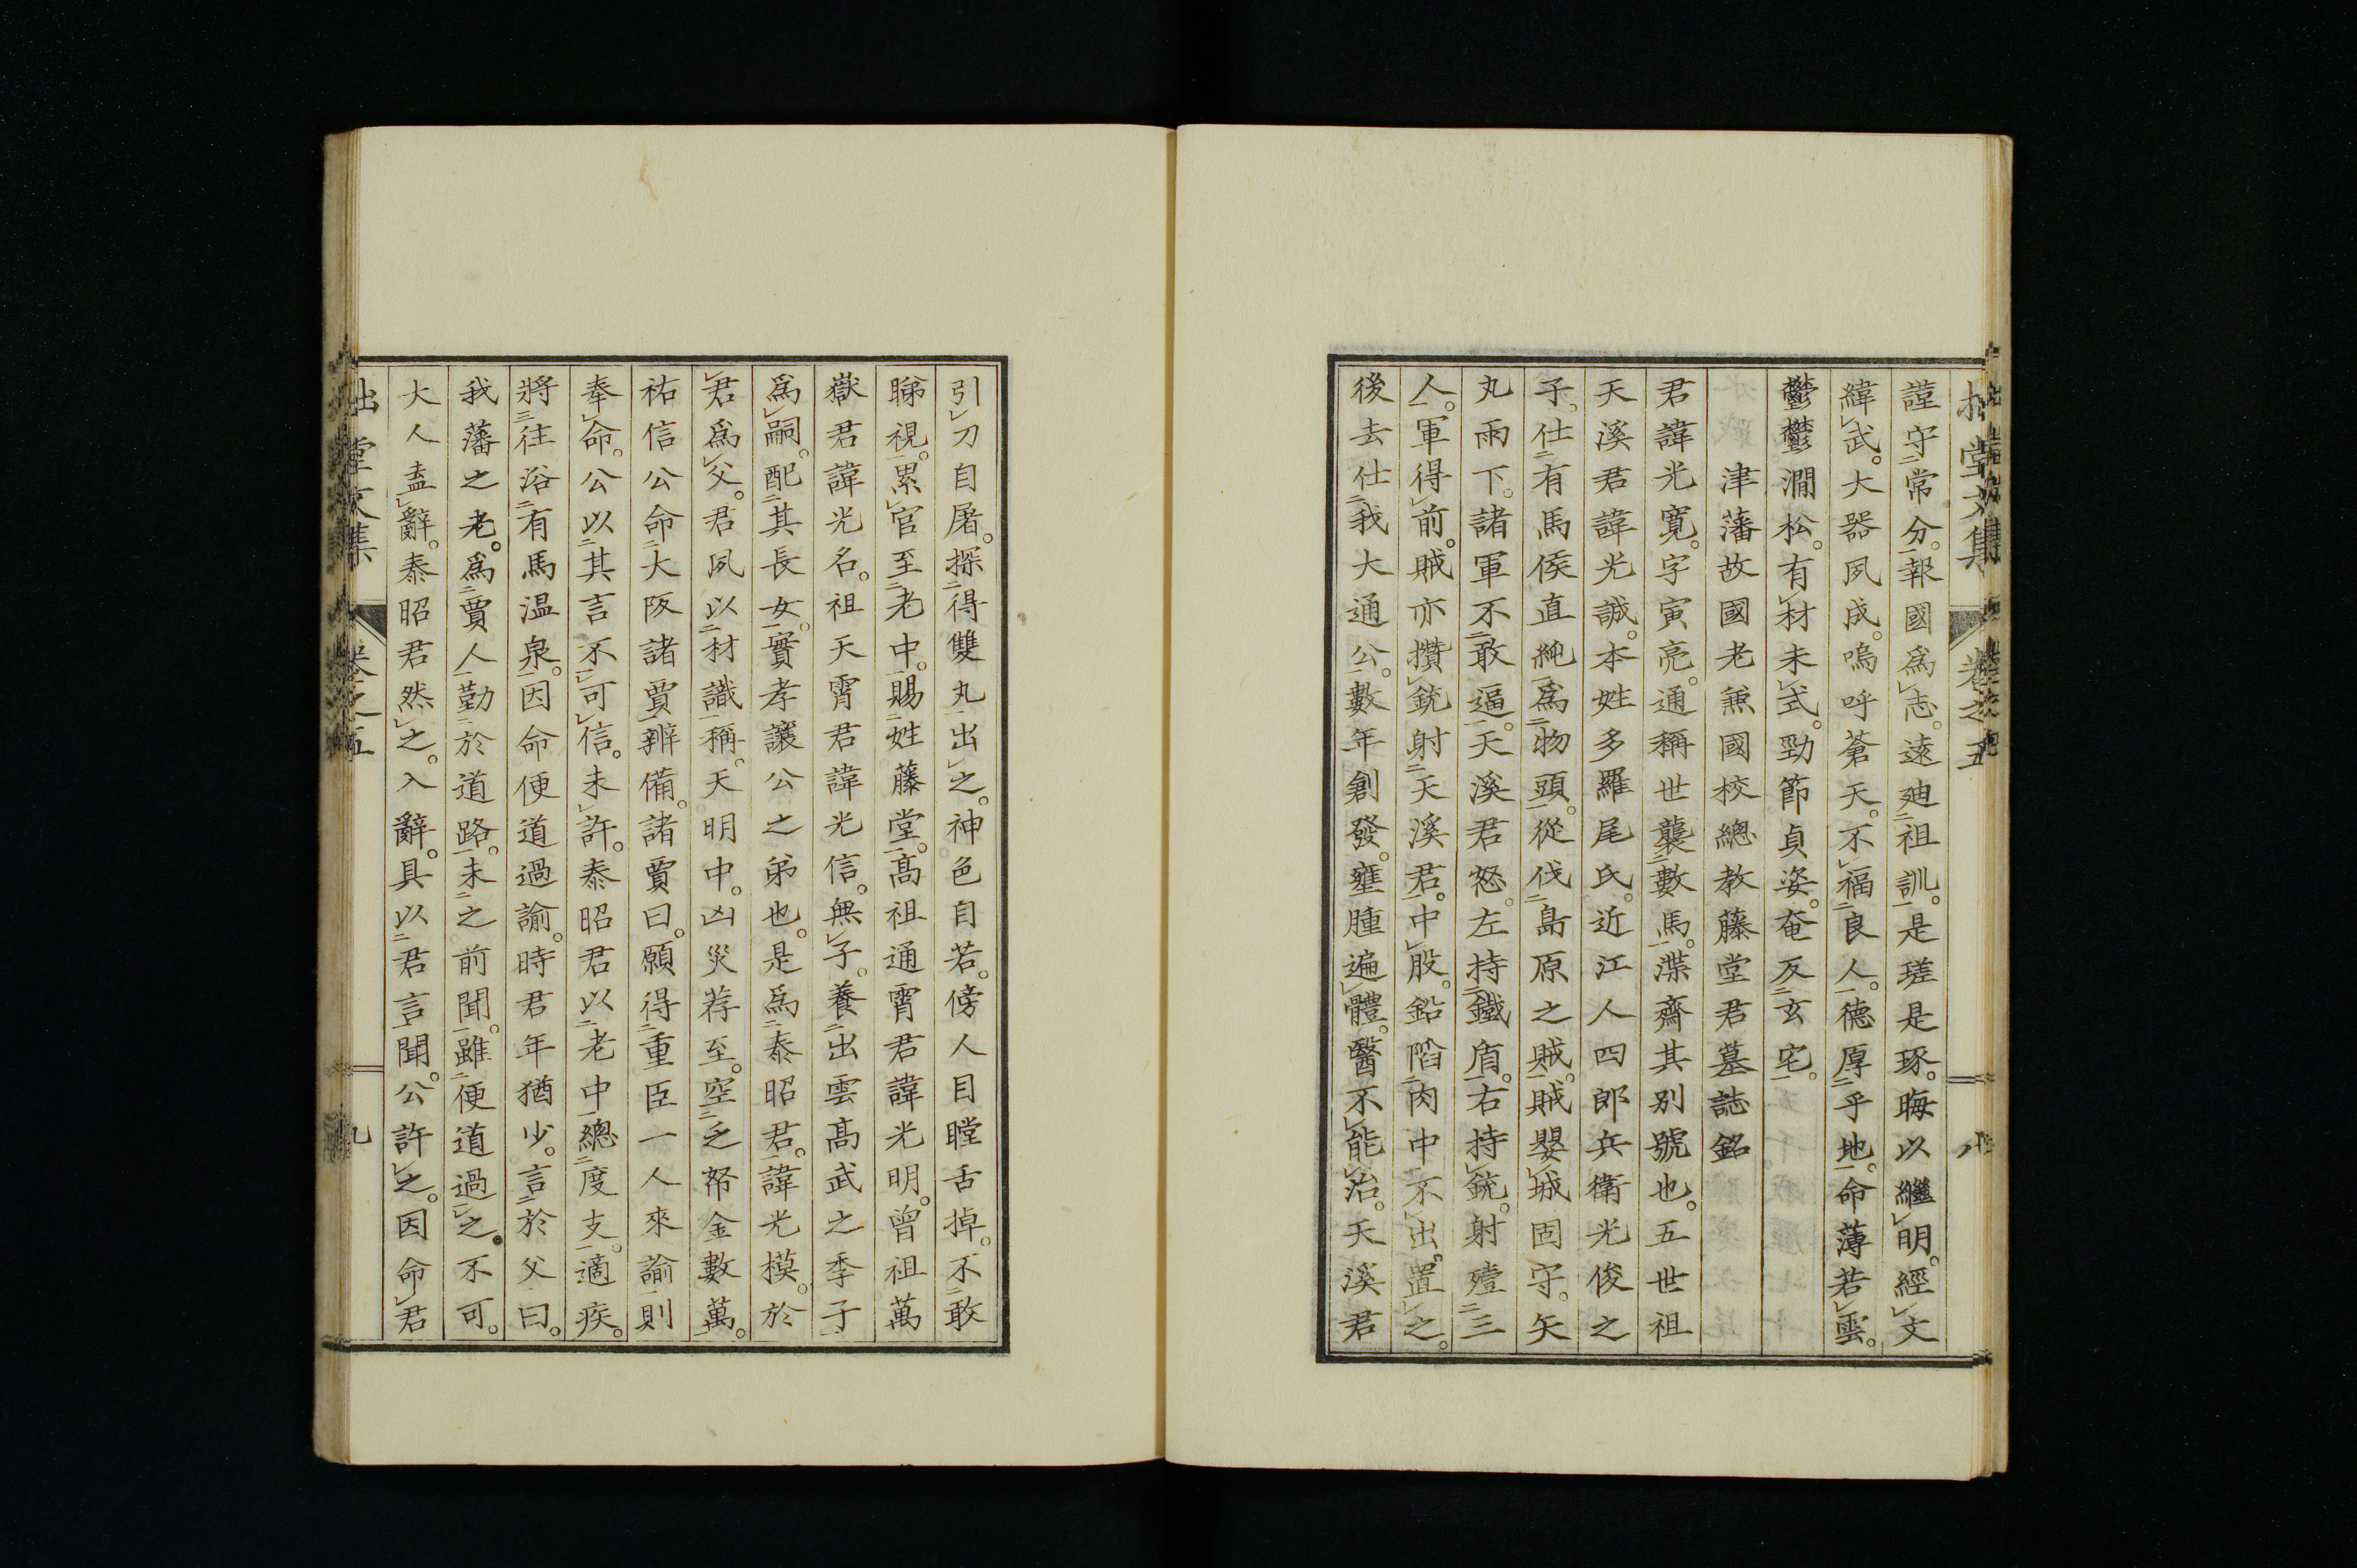 拙堂文集 卷之五 八
謹守常分。報國爲志。遠廸祖訓。是瑳是琢。晦以繼明。經文
緯武。大器夙成。嗚呼蒼天。不福良人。德厚乎地。命薄若雲。
鬱鬱澗松。有材未式。勁節貞姿。奄反玄宅。
津藩故國老兼國校總教藤堂君墓誌銘
君諱光寬。字寅亮。通稱世襲數馬。渫齋其別號也。五世祖
天溪君諱光誠。本姓多羅尾氏。近江人四郎兵衛光俊之
子。仕有馬侯直純爲物頭。從伐島原之賊。賊嬰城固守。矢
丸雨下。諸軍不敢逼。天溪君怒。左持鐵盾。右持銃。射殪三
人。軍得前。賊亦攢銃射天溪君。中股。鉛陷肉中不出。置之。
後去仕我大通公。數年創發。壅腫遍體。醫不能治。天溪君
引刀自屠。探得雙丸出之。神色自若。傍人目瞠舌掉。不敢
睇視。累官至老中。賜姓藤堂。高祖通霄君諱光明。曾祖萬
嶽君諱光名。祖天霄君諱光信。無子。養出雲高武之季子
爲嗣。配其長女。實孝讓公之弟也。是爲泰昭君。諱光模。於
君爲父。君夙以材識稱。天明中。凶災荐至。空乏帑金數萬。
祐信公命大阪諸賈辨備。諸賈曰。願得重臣一人來諭則
奉命。公以其言不可信。未許。泰昭君以老中總度支。適疾。
將往浴有馬温泉。因命便道過諭。時君年猶少。言於父曰。
我藩之老。爲賈人勤於道路。未之前聞。雖便道過之。不可。
大人盍辭。泰昭君然之。入辭。具以君言聞。公許之。因命君
拙堂文集 卷之五 九